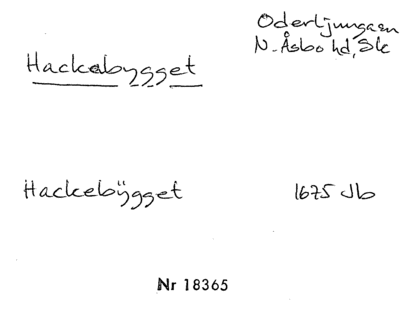 Oderljungaen
N. Åsbo hd, Sk
Hackebygget
Hackebÿgget 1675 Jb
Nr 18365